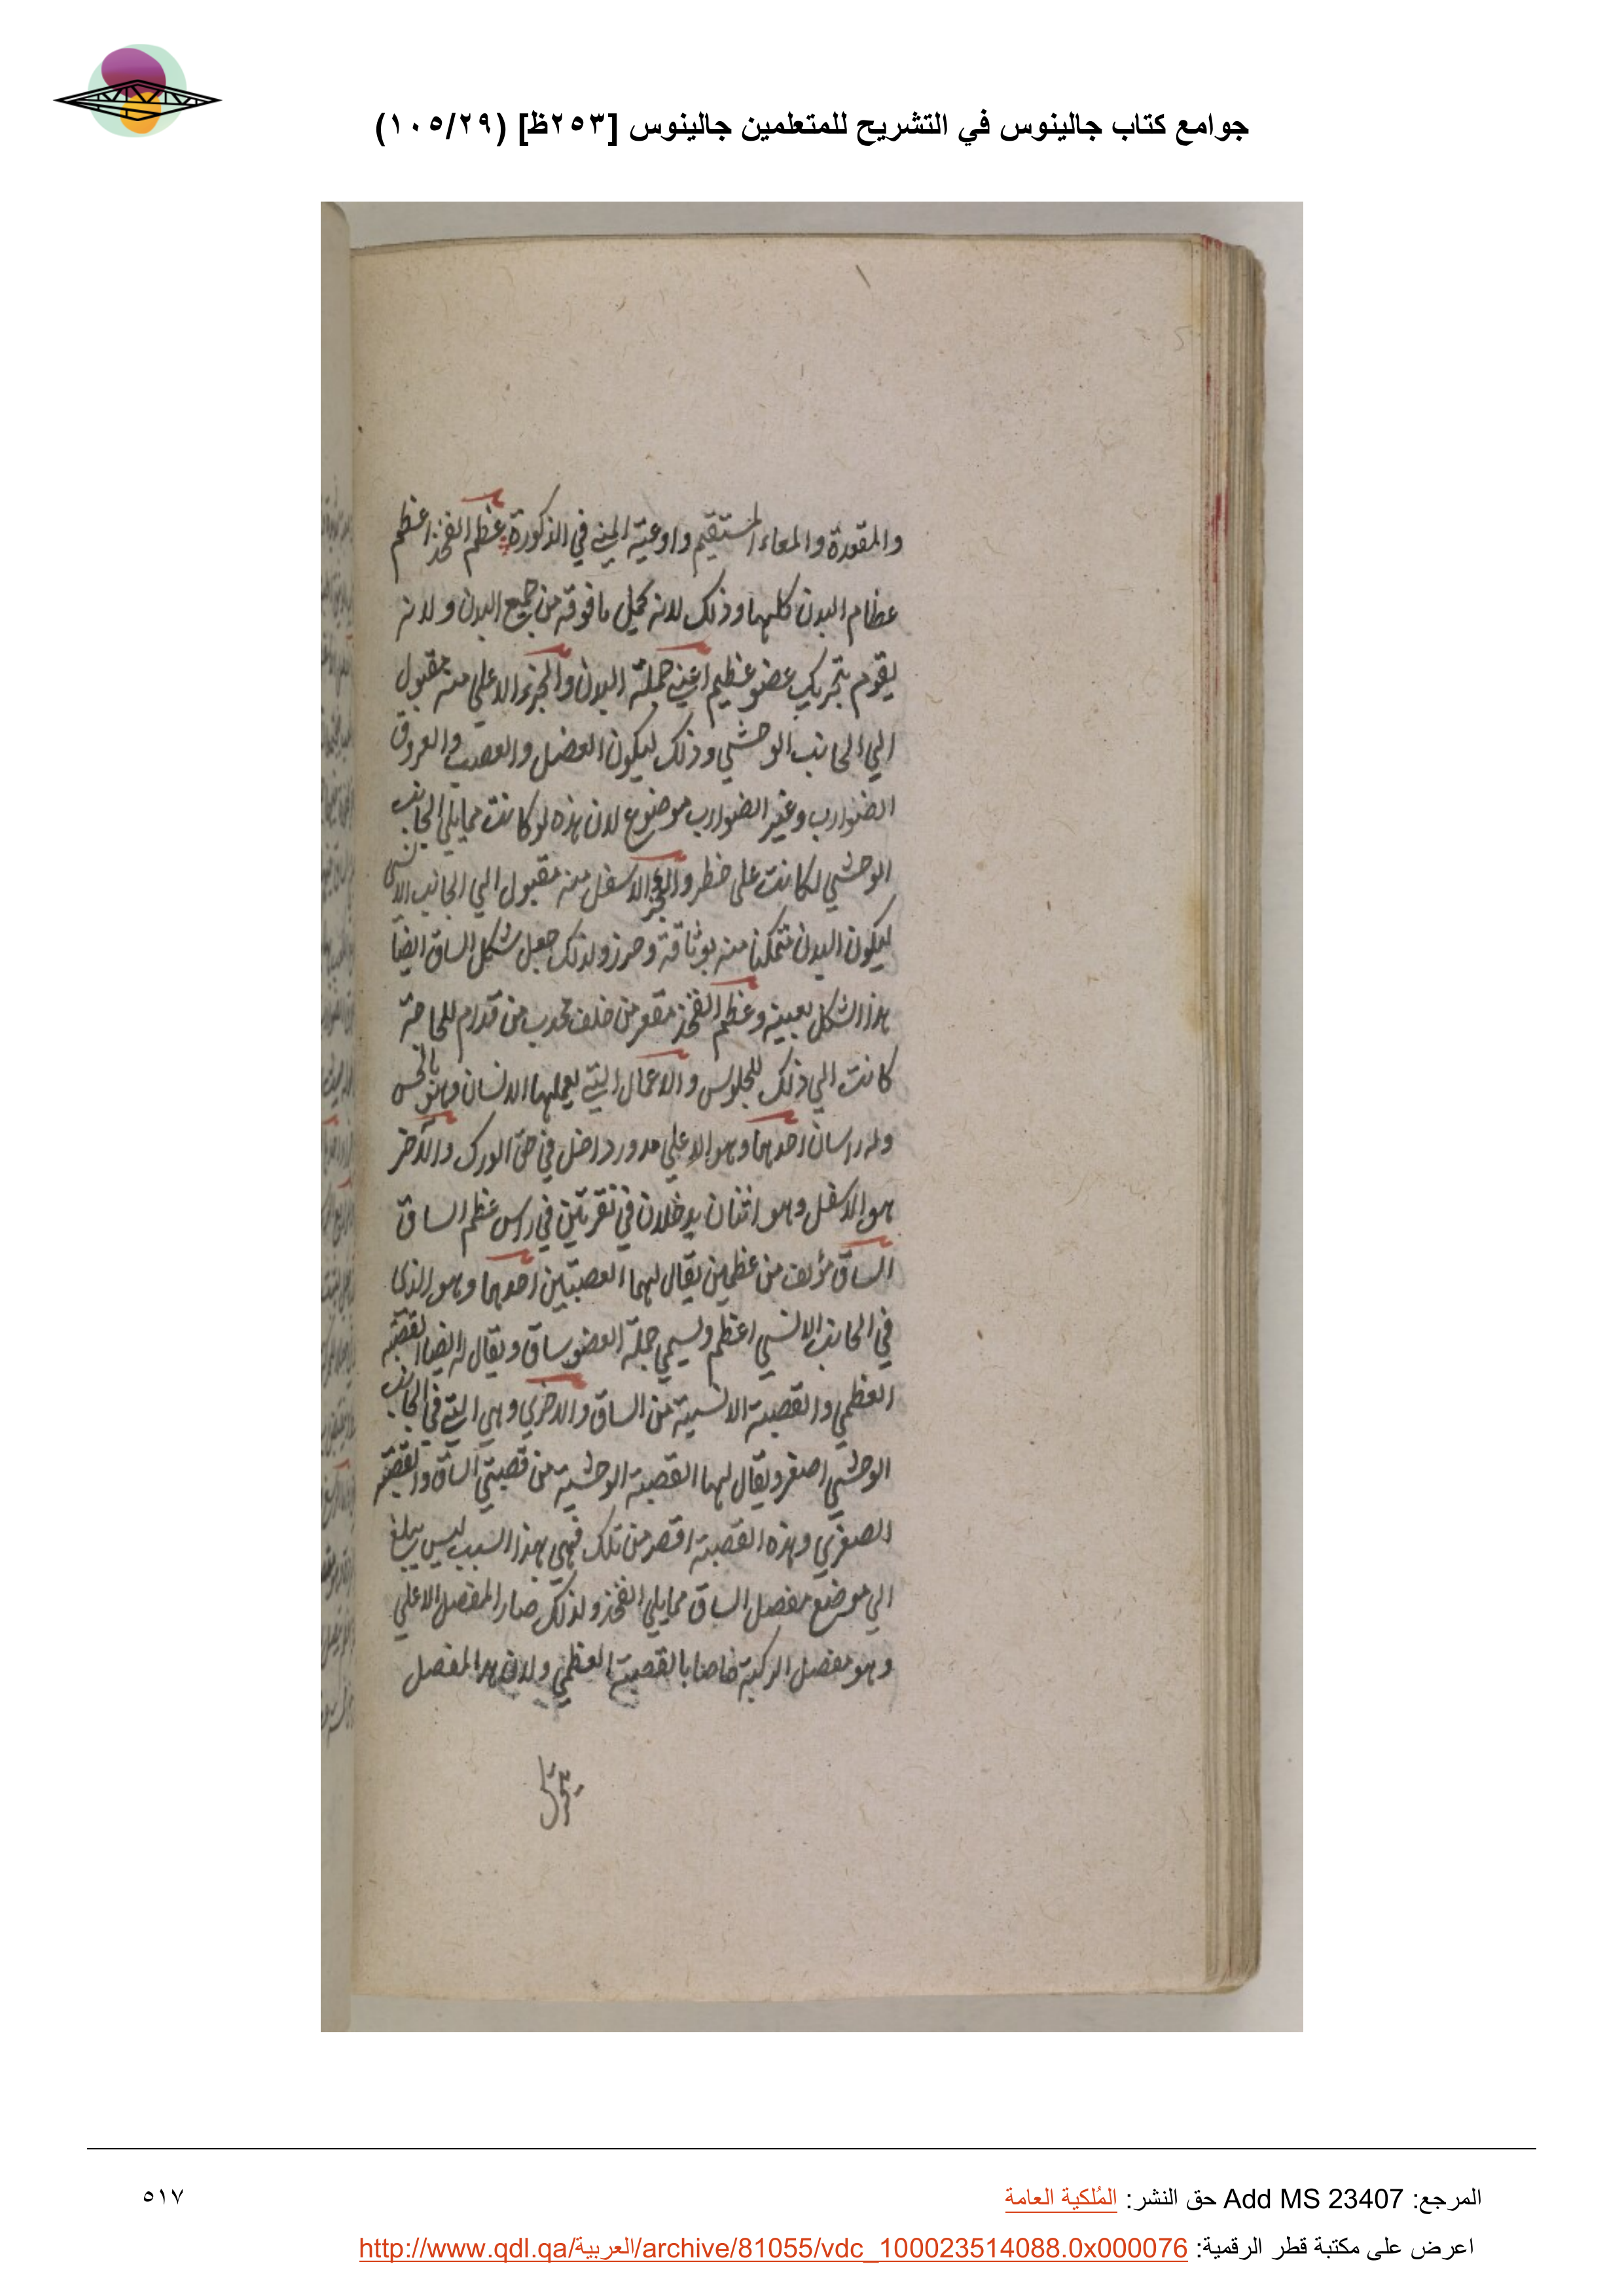 جوامع كتاب جالينوس في التشريح للمتعلمين جالينوس [٢٥٣ظ] (١٠٥/٢٩)
والمقعدة والمعاء المستقيم واوعية المني في الذكورة عظم الفخذ اعظم
عظام البدن كلها وذلك لانه يحمل ما فوقه من جميع البدن ولانه
يقوم بتحريك عضو عظيم اعني جملة البدن والجزء الاعلي منه مقبول
الي الجانب الوحشي وذلك ليكون العضل والعصب والعروق
الضوارب وغير الضوارب موضوع لان هذه لو كانت مما يلي الجانب
الوحشي لكانت علي خطر والجزء الاسفل منه مقبول الي الجانب الانسي
ليكون البدن متمكنا منه بوثاقة وحرز ولذلك جعل شكل الساق ايضا
هذا الشكل بعينه وعظم الفخذ مقعر من خلف محدب من قدام للحاجة
كانت الي ذلك للجلوس والاعمال التي يعملها الانسان وهو جالس
وله راسان احدهما وهو الاعلي مدور داخل في حق الورك والآخر
هو الاسفل وهو اثنان يدخلان في نقرتين في راس عظم الساق
الساق مؤلف من عظمين يقال لهما القصبتين احدهما وهو الذي
في الجانب الانسي اعظم ويسمي جملة العضو ساق ويقال له ايضا القصبة
العظمي والقصبة الانسية من الساق والاخري وهي التي في الجانب
الوحشي اصغر ويقال لها القصبة الوحشية من قصبتي الساق والقصبة
الصغري وهذه القصبة اقصر من تلك فهي بهذا السبب ليس يبلغ
الي موضع مفصل الساق مما يلي الفخذ ولذلك صار المفصل الاعلي
وهو مفصل الركبة خاصا بالقصبة العظمي ولان هذا المفصل
المرجع: Add MS 23407 حق النشر: المُلكية العامة
٥١٧
اعرض على مكتبة قطر الرقمية: http://www.qdl.qa/العربية/archive/81055/vdc_100023514088.0x000076